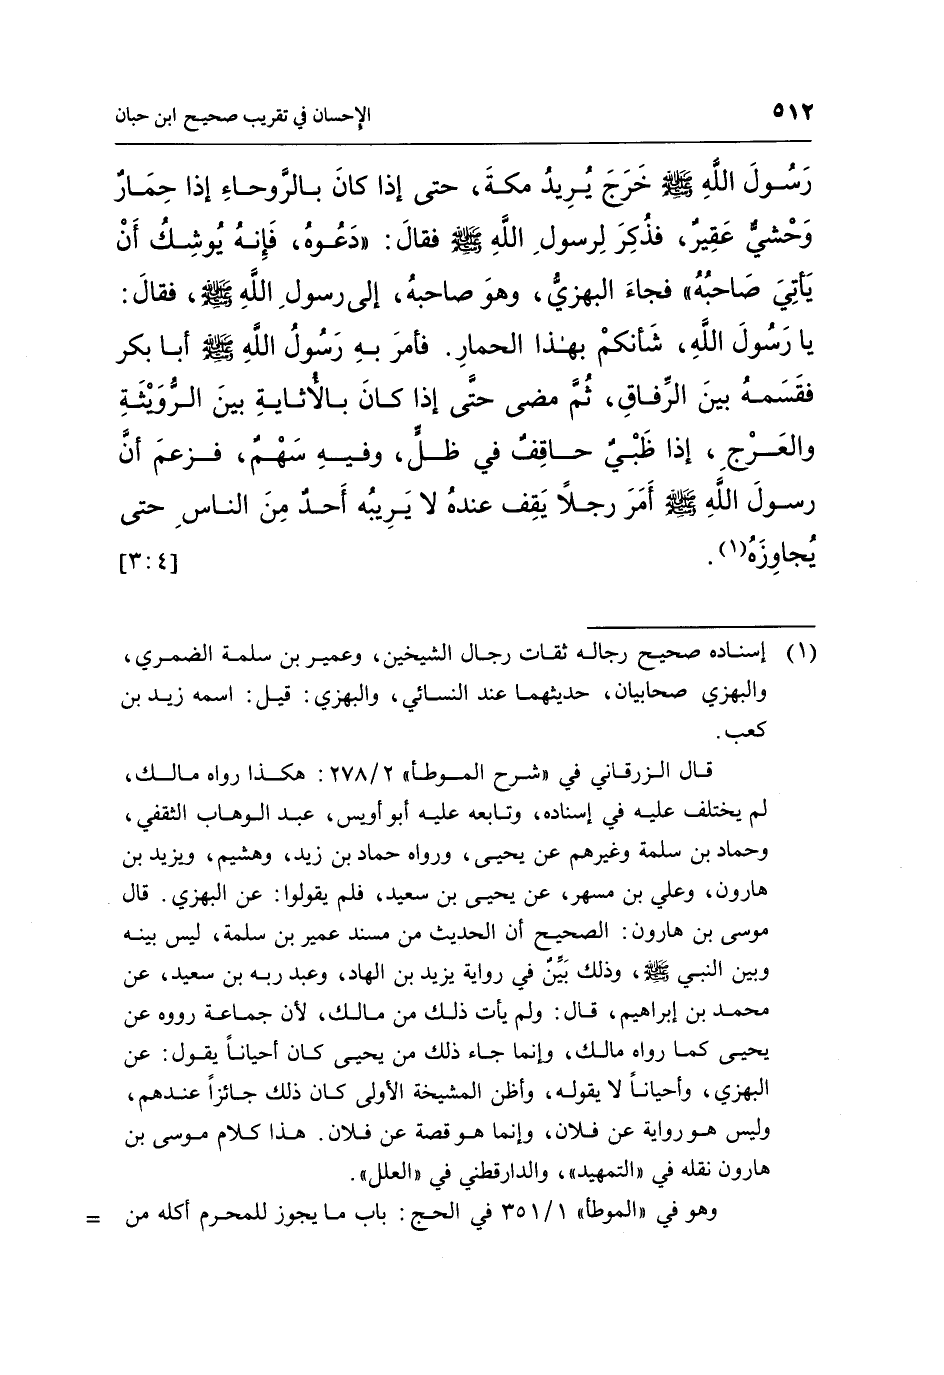 ٥١٢ الإحسان في تقريب صحيح ابن حبان
رَسُولَ اللَّهِ ﷺ خَرَجَ يُرِيدُ مكةَ، حتى إذا كانَ بالرَّوحاءِ إذا حِمَارٌ
وَحْشيٌّ عَقِيرٌ، فذُكِرَ لِرسولِ اللَّهِ ﷺ فقالَ: «دَعُوهُ، فَإِنهُ يُوشِكُ أَنْ
يَأتِيَ صَاحبُهُ» فجاءَ البهزيُّ، وهوَ صاحبهُ، إلى رسولِ اللَّهِ ﷺ، فقالَ:
يا رَسُولَ اللَّهِ، شَأنكمْ بهٰذا الحمارِ. فأمرَ بهِ رَسُولُ اللَّهِ ﷺ أبا بكر
فقَسَمهُ بينَ الرِّفاقِ، ثُمَّ مضى حتَّى إذا كانَ بالأُثايةِ بينَ الرُّوَيْثَةِ
والعَرْجِ، إذا ظَبْيٌ حاقِفٌ في ظلٍّ، وفيهِ سَهْمٌ، فزعمَ أنَّ
رسولَ اللَّهِ ﷺ أَمَرَ رجلاً يَقِف عندهُ لا يَرِيبُه أَحدٌ مِنَ الناسِ حتى
يُجاوِزَهُ(١). [٤: ٣]
(١) إسناده صحيح رجاله ثقات رجال الشيخين، وعمير بن سلمة الضمري،
والبهزي صحابيان، حديثهما عند النسائي، والبهزي: قيل: اسمه زيد بن
كعب.
قال الزرقاني في «شرح الموطأ» ٢٧٨/٢: هكذا رواه مالك،
لم يختلف عليه في إسناده، وتابعه عليه أبو أويس، عبد الوهاب الثقفي،
وحماد بن سلمة وغيرهم عن يحيى، ورواه حماد بن زيد، وهشيم، ويزيد بن
هارون، وعلي بن مسهر، عن يحيى بن سعيد، فلم يقولوا: عن البهزي. قال
موسى بن هارون: الصحيح أن الحديث من مسند عمير بن سلمة، ليس بينه
وبين النبي ﷺ، وذلك بَيِّنٌ في رواية يزيد بن الهاد، وعبد ربه بن سعيد، عن
محمد بن إبراهيم، قال: ولم يأت ذلك من مالك، لأن جماعة رووه عن
يحيى كما رواه مالك، وإنما جاء ذلك من يحيى كان أحياناً يقول: عن
البهزي، وأحياناً لا يقوله، وأظن المشيخة الأولى كان ذلك جائزاً عندهم،
وليس هو رواية عن فلان، وإنما هو قصة عن فلان. هذا كلام موسى بن
هارون نقله في «التمهيد»، والدارقطني في «العلل».
وهو في «الموطأ» ٣٥١/١ في الحج: باب ما يجوز للمحرم أكله من =